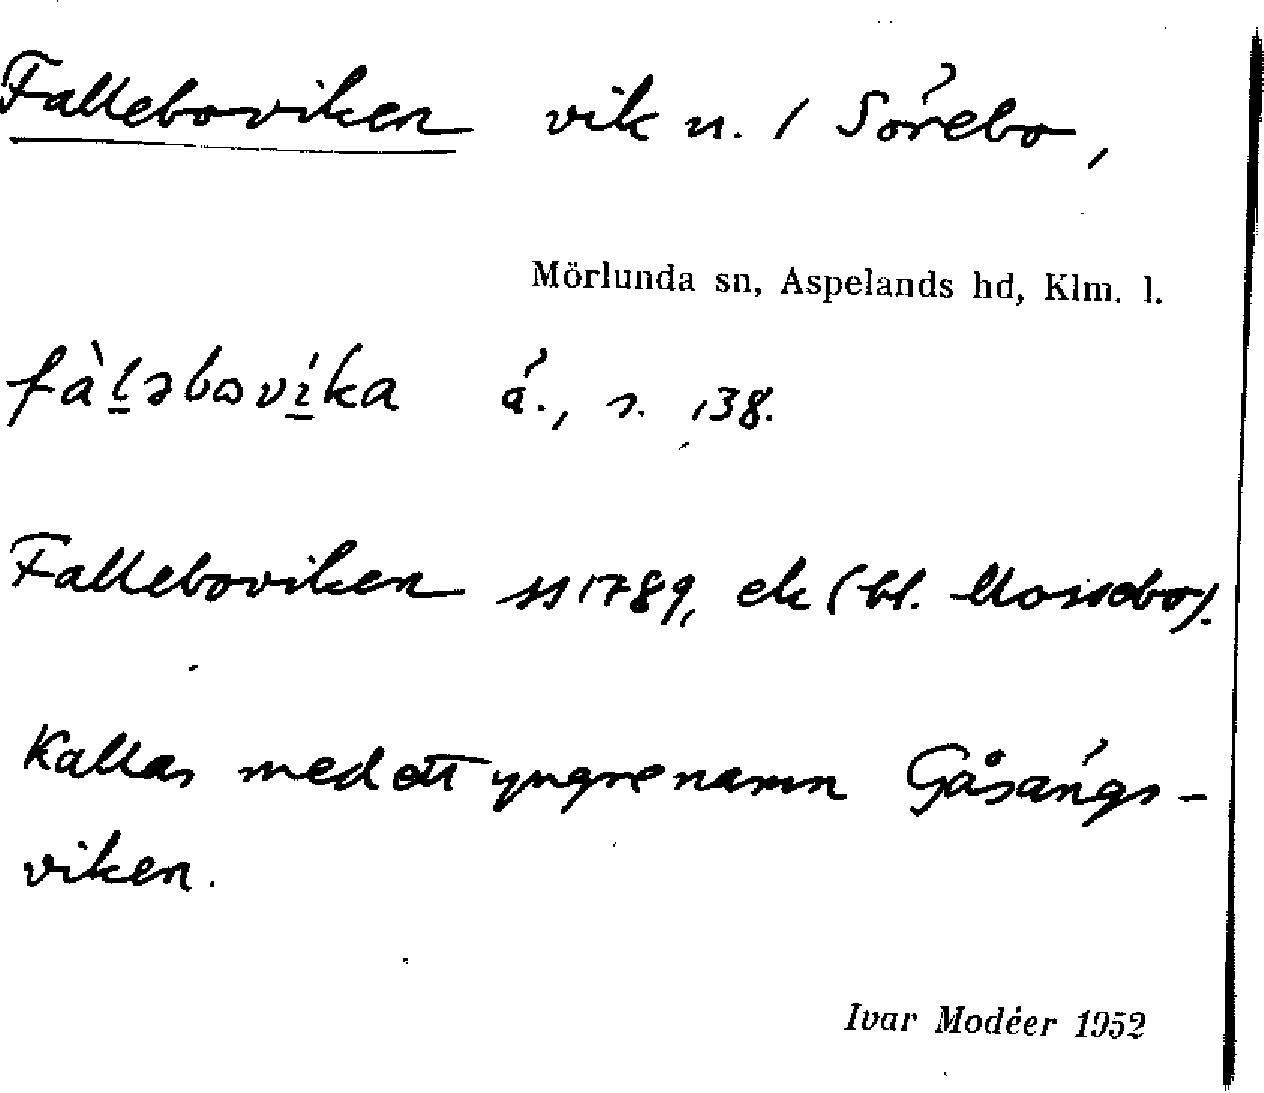 Falleboviken vik n. / Sörebo,
Mörlunda sn, Aspelands hd, Klm. l.
fàḻəboví̱ka ä., s. 138.
Falleboviken ss 1789, ek (bl. Mossebo).
Kallas med ett yngre namn Gåsängs-
viken.
Ivar Modéer 1952